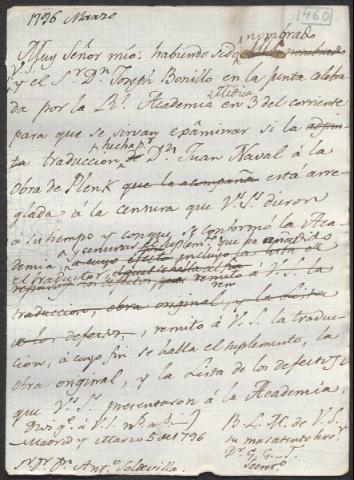 1796 Marzo
460
nombrado
Muy Señor mio: habiendo sido nombrado
V.S. y el Sr. Dn. Joseph Bonillo en la junta celebra
da por la Rl. Academia Medica en 3 del corriente
para que se sirvan exâminar si la adjun
ta traduccion hecha pr. Dn. Juan Naval â la
Obra de Plenk que la acompaña está arre
glada â la censura que Vs. Ss. dieron
a su tiempo y con que se conformó la Aca-
demia, y censurar el suplemto. que ha añadido
a cuyo efecto incluyo la lista
el traductor,
remito â V.S. la
traduccion, obra original, y la Lista
de los defectos, remito â V.S. la traduc-
cion, â cuyo fin se halla el suplemento, la
obra original, y la Lista de los defectos
que Vs. Ss. presentaron â la Academia.
Dios ge. â V.S. ms. as.
Madrid y Marzo 5 de 1796
B. L. M. de V.S.
su mas atento servr.
Dr. I. G. T.
Secreto.
Sr. Dr. Dn. Anto. Soldevilla.